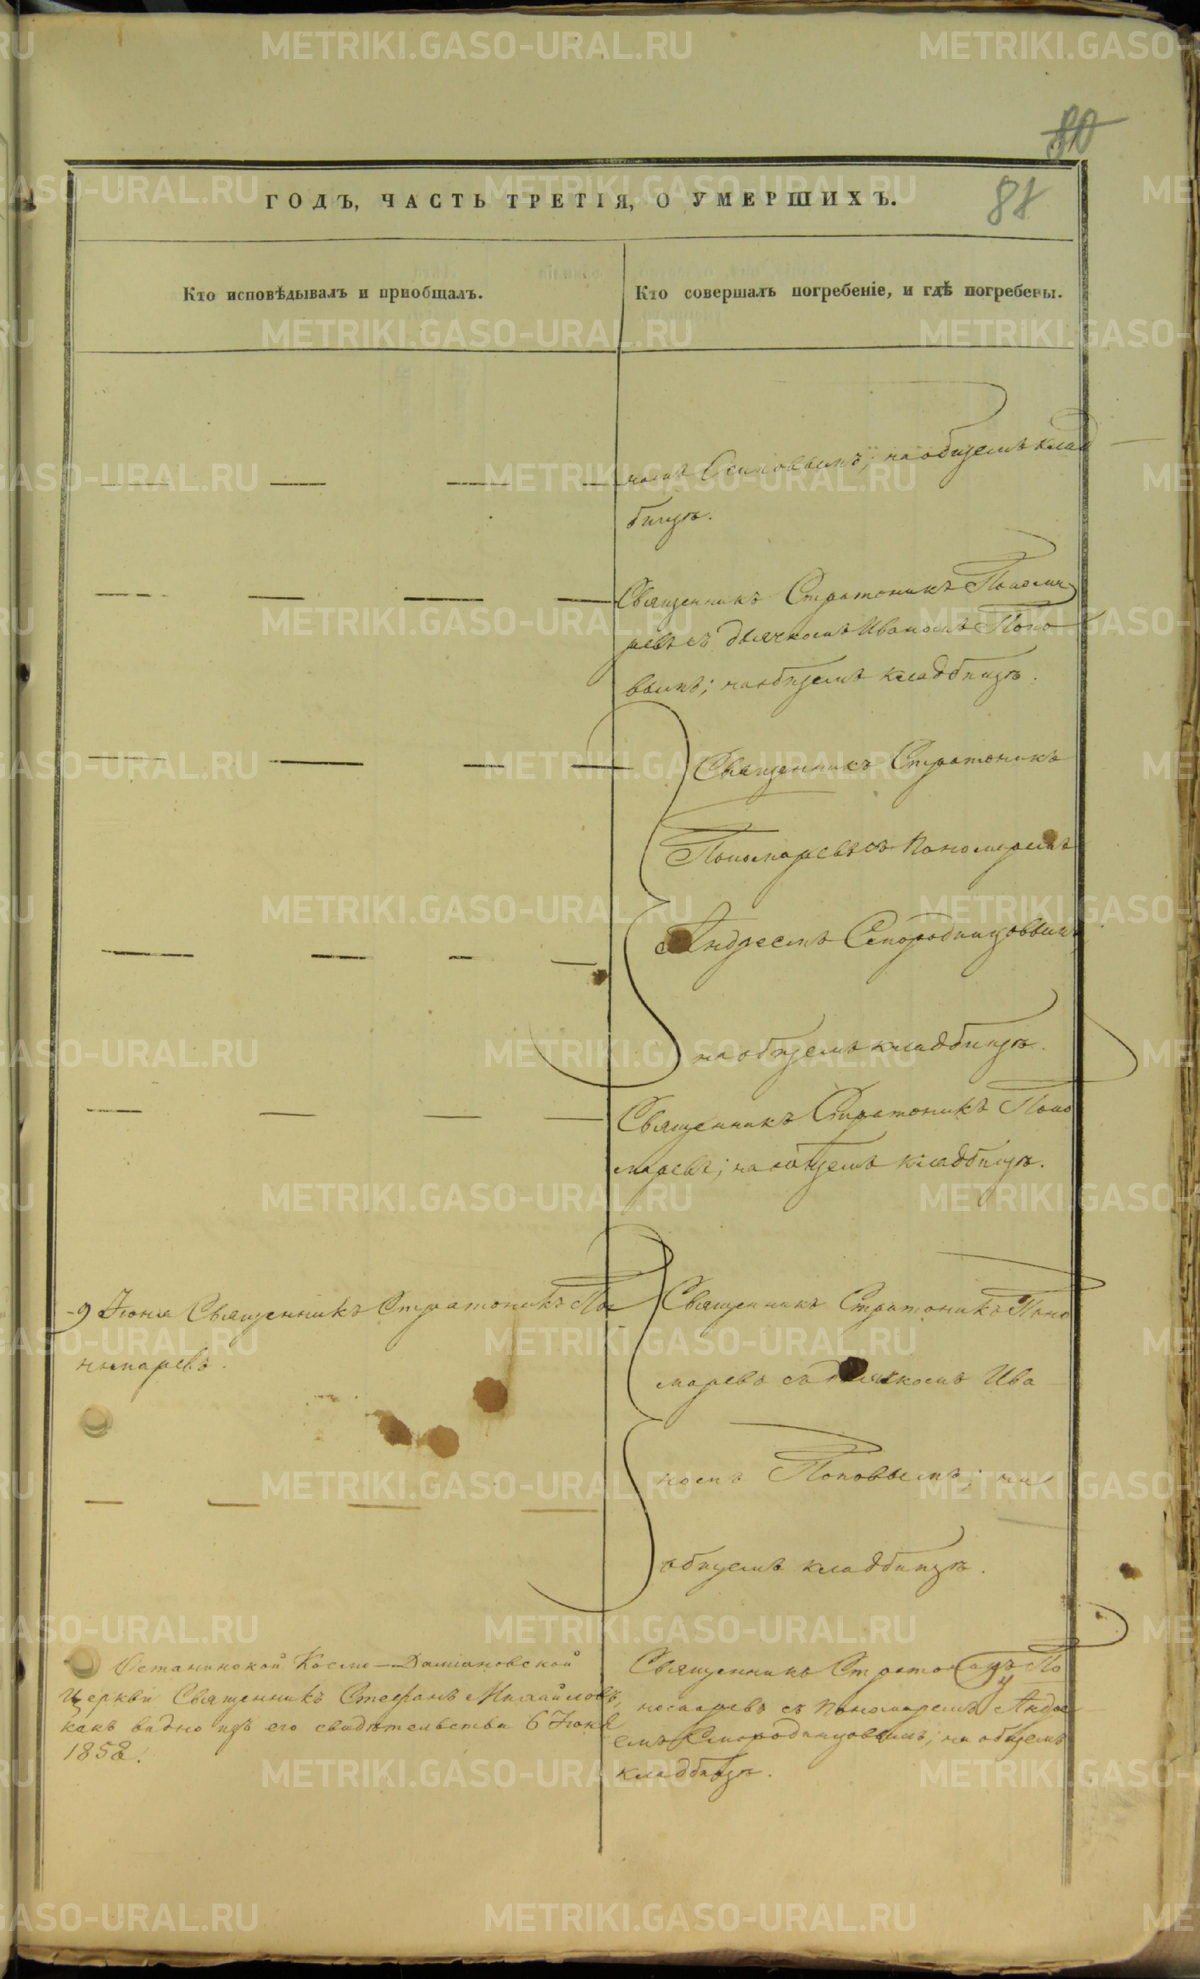 80
88
ГОДЪ, ЧАСТЬ ТРЕТІЯ, О УМЕРШИХЪ.
Кто исповѣдывалъ и пріобщалъ.
Кто совершалъ погребеніе, и гдѣ погребены.
номъ Осиповымъ; на общемъ клад
бищѣ.
Священникъ Стратоникъ Пономa
ревъ съ дьячкомъ Иваномъ Попо
вымъ; на общемъ кладбищѣ.
Священникъ Стратоникъ
Пономаревъ съ Пономаремъ
Андреемъ Смородинцовымъ
на общемъ кладбищѣ.
Священникъ Стратоникъ Поно
маревъ; на общемъ кладбищѣ.
9 Іюня Священникъ Стратоникъ По
номаревъ.
Священникъ Стратоникъ Поно
маревъ съ дьячкомъ Ива
номъ Поповымъ; на
общемъ кладбищѣ.
Останинской Космо-Даміановской
Церкви Священникъ Стефанъ Михайловъ,
какъ видно изъ его свидѣтельства 6 Іюня
1858.
Священникъ Стратоникъ По
номаревъ съ Пономаремъ Андре
емъ Смородинцовымъ; на общемъ
кладбищѣ.
METRIKI.GASO-URAL.RU